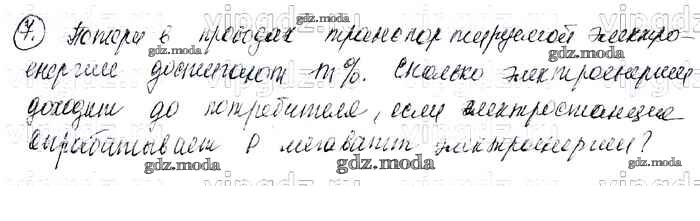 7. Потери в проводах транспортируемой электро-
енергии достигают m%. Сколько электроенергии
доходит до потребителя, если электростанция
вырабатывает P мегаватт электроэнергии?
gdz.moda
gdz.moda
gdz.moda
gdz.moda
gdz.moda